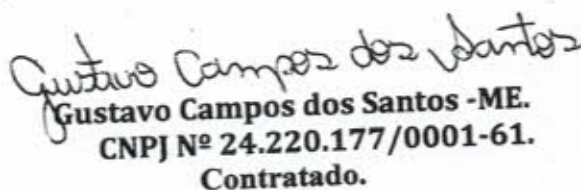 Gustavo Campos dos Santos
Gustavo Campos dos Santos -ME.
CNPJ Nº 24.220.177/0001-61.
Contratado.